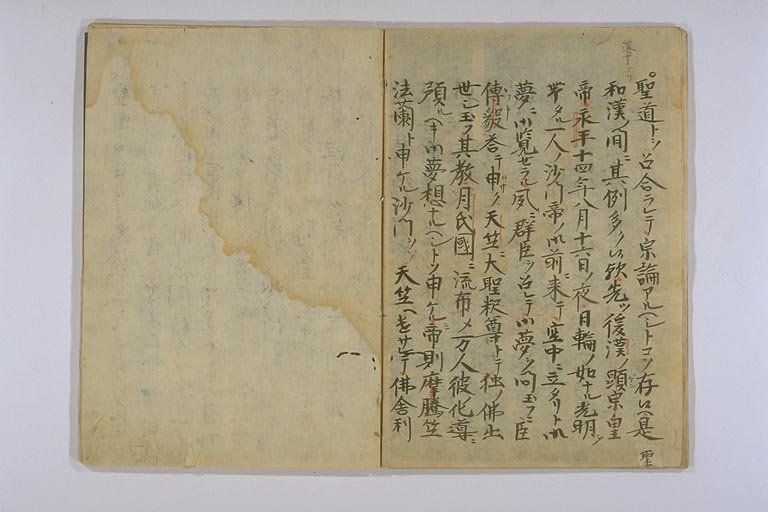 聖道トシ召合ラレテ宗論アルヘシトコソ存候へ是
和漢ノ間ニ其例多ク候歟先ツ後漢ノ顕宗皇
帝永平十四年八月十六日ノ夜日輪ノ如ナル光明ヲ
帯タル一人ノ沙門帝ノ御前ニ来テ空中ニ立タリト御
夢ニ御覧セラル夙ニ群臣ヲ召シテ御夢ヲ問玉フニ臣
傳毅答テ申ク天竺ニ大聖釈尊トテ独ノ佛出
世シ玉フ其教月氏國ニ流布メ万人彼化導ニ
預ルヘキ御夢想ナルヘシトソ申ケル帝則摩騰竺
法蘭ト申ケル沙門ヲ 天竺ヘ遣サレテ佛舎利
聖